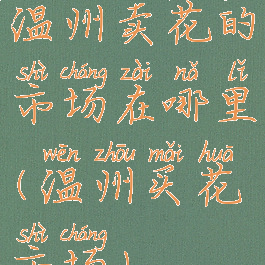 温州卖花的
shì chǎng zài nǎ lǐ
市场在哪里
wēn zhōu mǎi huā
(温州买花
shì chǎng
市场)